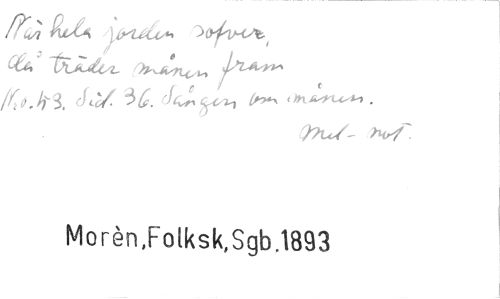 När hela jorden sofver,
då träder månen fram
No. 43. Sid. 36. Sången om månen.
Mel-not.
Morèn,Folksk,Sgb.1893